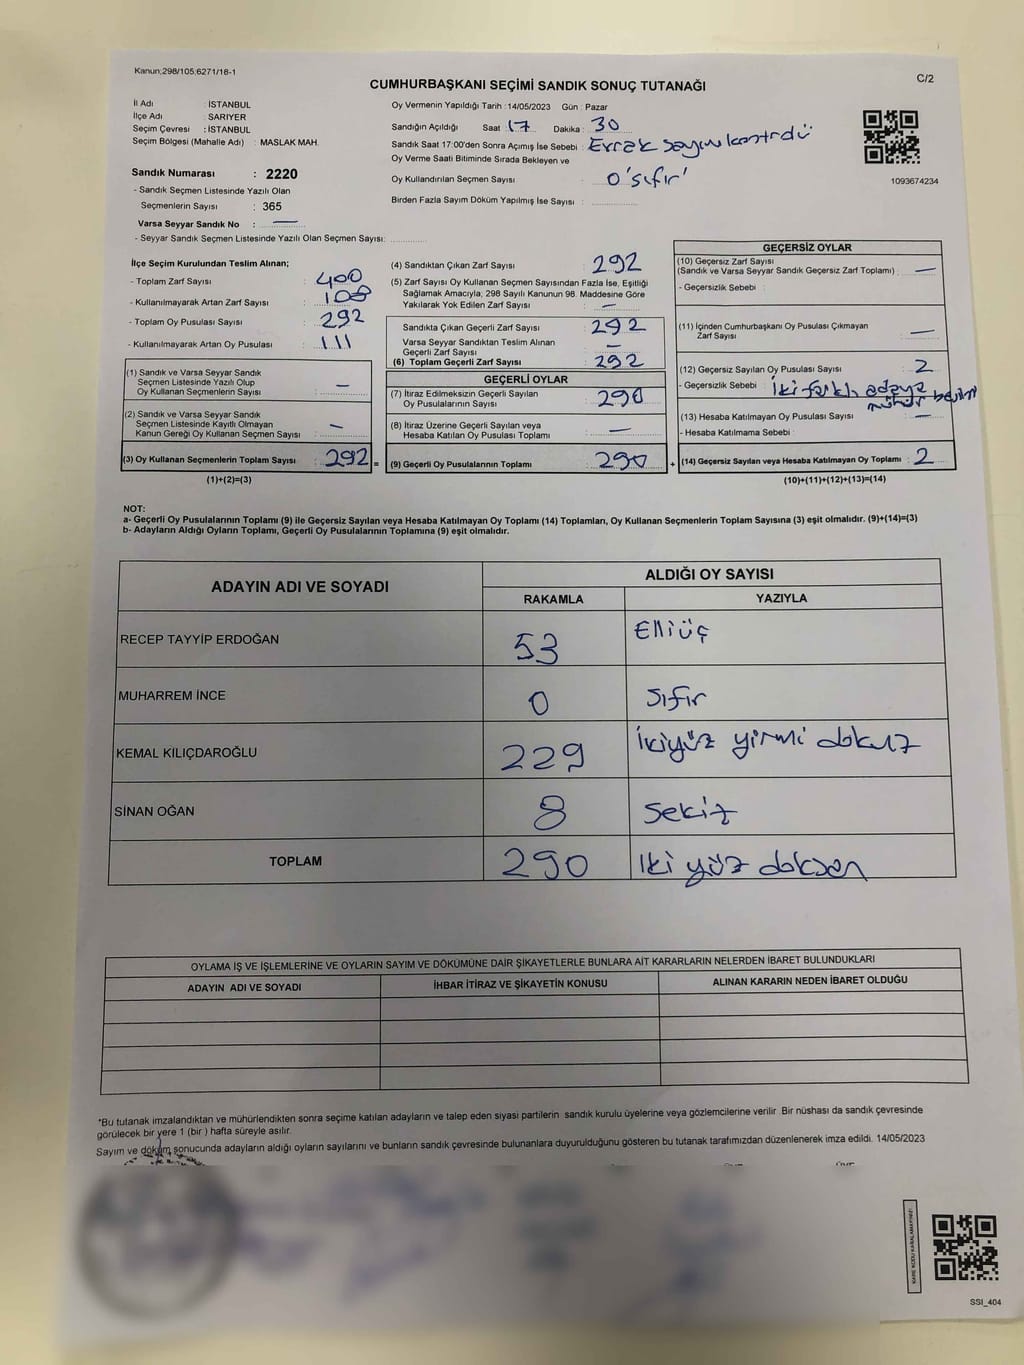 Kanun;298/105;6271/18-1
C/2
CUMHURBAŞKANI SEÇİMİ SANDIK SONUÇ TUTANAĞI
İl Adı : İSTANBUL
İlçe Adı : SARIYER
Seçim Çevresi : İSTANBUL
Seçim Bölgesi (Mahalle Adı) : MASLAK MAH.
Sandık Numarası : 2220
- Sandık Seçmen Listesinde Yazılı Olan
Seçmenlerin Sayısı : 365
Varsa Seyyar Sandık No : —
- Seyyar Sandık Seçmen Listesinde Yazılı Olan Seçmen Sayısı:
Oy Vermenin Yapıldığı Tarih : 14/05/2023 Gün : Pazar
Sandığın Açıldığı Saat : 17 Dakika : 30
Sandık Saat 17:00'den Sonra Açımış İse Sebebi : Evrak sayımı
Oy Verme Saati Bitiminde Sırada Bekleyen ve
Oy Kullandırılan Seçmen Sayısı : 0 'sıfır'
Birden Fazla Sayım Döküm Yapılmış İse Sayısı :
1093674234
İlçe Seçim Kurulundan Teslim Alınan;
- Toplam Zarf Sayısı : 400
- Kullanılmayarak Artan Zarf Sayısı : 108
- Toplam Oy Pusulası Sayısı : 292
- Kullanılmayarak Artan Oy Pusulası : 111
(1) Sandık ve Varsa Seyyar Sandık
Seçmen Listesinde Yazılı Olup
Oy Kullanan Seçmenlerin Sayısı : —
(2) Sandık ve Varsa Seyyar Sandık
Seçmen Listesinde Kayıtlı Olmayan
Kanun Gereği Oy Kullanan Seçmen Sayısı : —
(3) Oy Kullanan Seçmenlerin Toplam Sayısı : 292 =
(1)+(2)=(3)
(4) Sandıktan Çıkan Zarf Sayısı : 292
(5) Zarf Sayısı Oy Kullanan Seçmen Sayısından Fazla İse, Eşitliği
Sağlamak Amacıyla, 298 Sayılı Kanunun 98. Maddesine Göre
Yakılarak Yok Edilen Zarf Sayısı : —
Sandıkta Çıkan Geçerli Zarf Sayısı : 292
Varsa Seyyar Sandıktan Teslim Alınan
Geçerli Zarf Sayısı : —
(6) Toplam Geçerli Zarf Sayısı : 292
GEÇERLİ OYLAR
(7) İtiraz Edilmeksizin Geçerli Sayılan
Oy Pusulalarının Sayısı : 290
(8) İtiraz Üzerine Geçerli Sayılan veya
Hesaba Katılan Oy Pusulası Toplamı : —
(9) Geçerli Oy Pusulalarının Toplamı : 290 +
GEÇERSİZ OYLAR
(10) Geçersiz Zarf Sayısı
(Sandık ve Varsa Seyyar Sandık Geçersiz Zarf Toplamı) : —
- Geçersizlik Sebebi :
(11) İçinden Cumhurbaşkanı Oy Pusulası Çıkmayan
Zarf Sayısı : —
(12) Geçersiz Sayılan Oy Pusulası Sayısı : 2
- Geçersizlik Sebebi : İki farklı adaya
mühür
(13) Hesaba Katılmayan Oy Pusulası Sayısı : —
- Hesaba Katılmama Sebebi :
(14) Geçersiz Sayılan veya Hesaba Katılmayan Oy Toplamı : 2
(10)+(11)+(12)+(13)=(14)
NOT:
a- Geçerli Oy Pusulalarının Toplamı (9) ile Geçersiz Sayılan veya Hesaba Katılmayan Oy Toplamı (14) Toplamları, Oy Kullanan Seçmenlerin Toplam Sayısına (3) eşit olmalıdır. (9)+(14)=(3)
b- Adayların Aldığı Oyların Toplamı, Geçerli Oy Pusulalarının Toplamına (9) eşit olmalıdır.
ADAYIN ADI VE SOYADI
ALDIĞI OY SAYISI
RAKAMLA YAZIYLA
RECEP TAYYİP ERDOĞAN 53 Elliüç
MUHARREM İNCE 0 Sıfır
KEMAL KILIÇDAROĞLU 229 İkiyüz yirmi dokuz
SİNAN OĞAN 8 Sekiz
TOPLAM 290 İki yüz doksan
OYLAMA İŞ VE İŞLEMLERİNE VE OYLARIN SAYIM VE DÖKÜMÜNE DAİR ŞİKAYETLERLE BUNLARA AİT KARARLARIN NELERDEN İBARET BULUNDUKLARI
ADAYIN ADI VE SOYADI İHBAR İTİRAZ VE ŞİKAYETİN KONUSU ALINAN KARARIN NEDEN İBARET OLDUĞU
*Bu tutanak imzalandıktan ve mühürlendikten sonra seçime katılan adayların ve talep eden siyasi partilerin sandık kurulu üyelerine veya gözlemcilerine verilir. Bir nüshası da sandık çevresinde
görülecek bir yere 1 (bir ) hafta süreyle asılır.
Sayım ve döküm sonucunda adayların aldığı oyların sayılarını ve bunların sandık çevresinde bulunanlara duyurulduğunu gösteren bu tutanak tarafımızdan düzenlenerek imza edildi. 14/05/2023
SSI_404